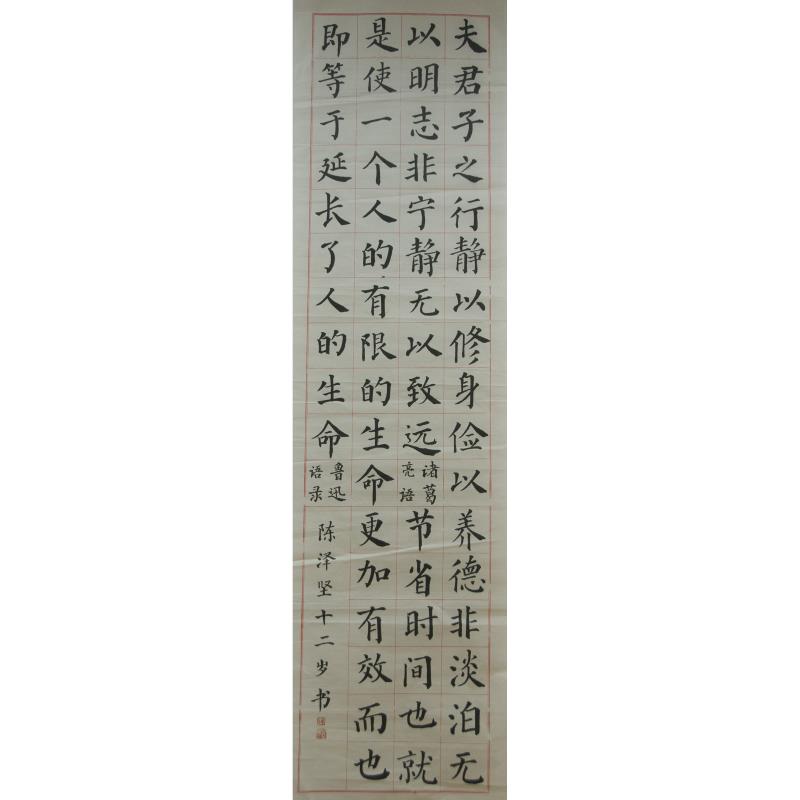 夫君子之行静以修身俭以养德非淡泊无
以明志非宁静无以致远诸葛亮语节省时间也就
是使一个人的有限的生命更加有效而也
即等于延长了人的生命鲁迅语录
陈泽坚十二岁书